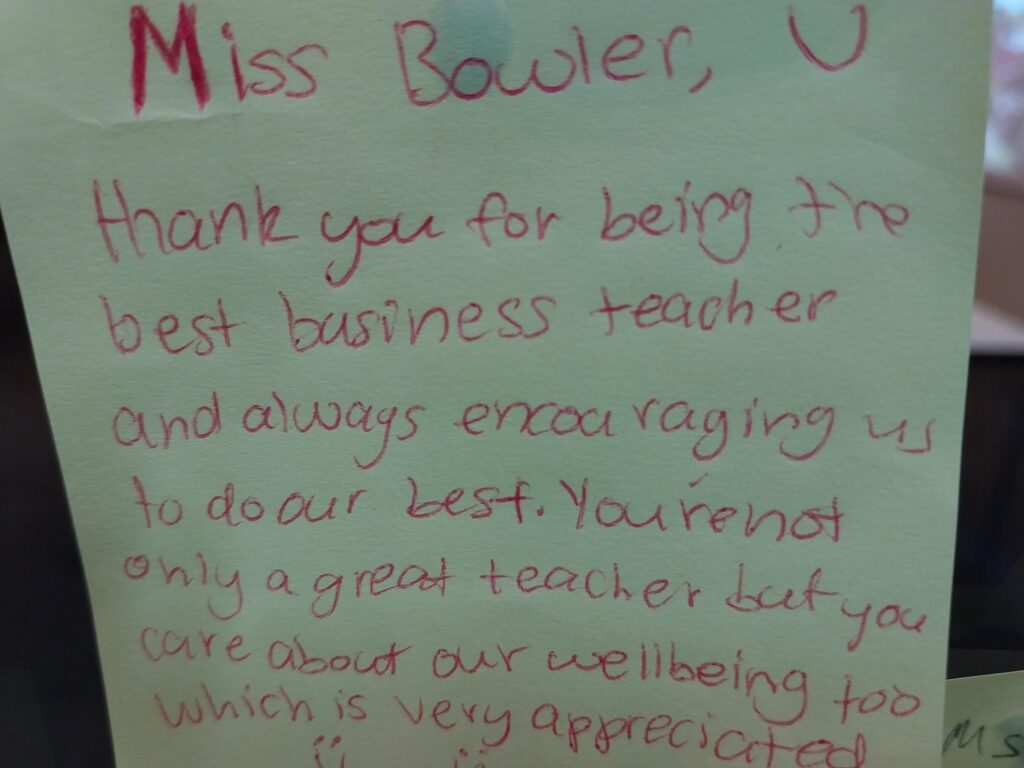 Miss Bowler,
thank you for being the
best business teacher
and always encouraging us
to do our best. You're not
only a great teacher but you
care about our wellbeing too
which is very appreciated
Ms